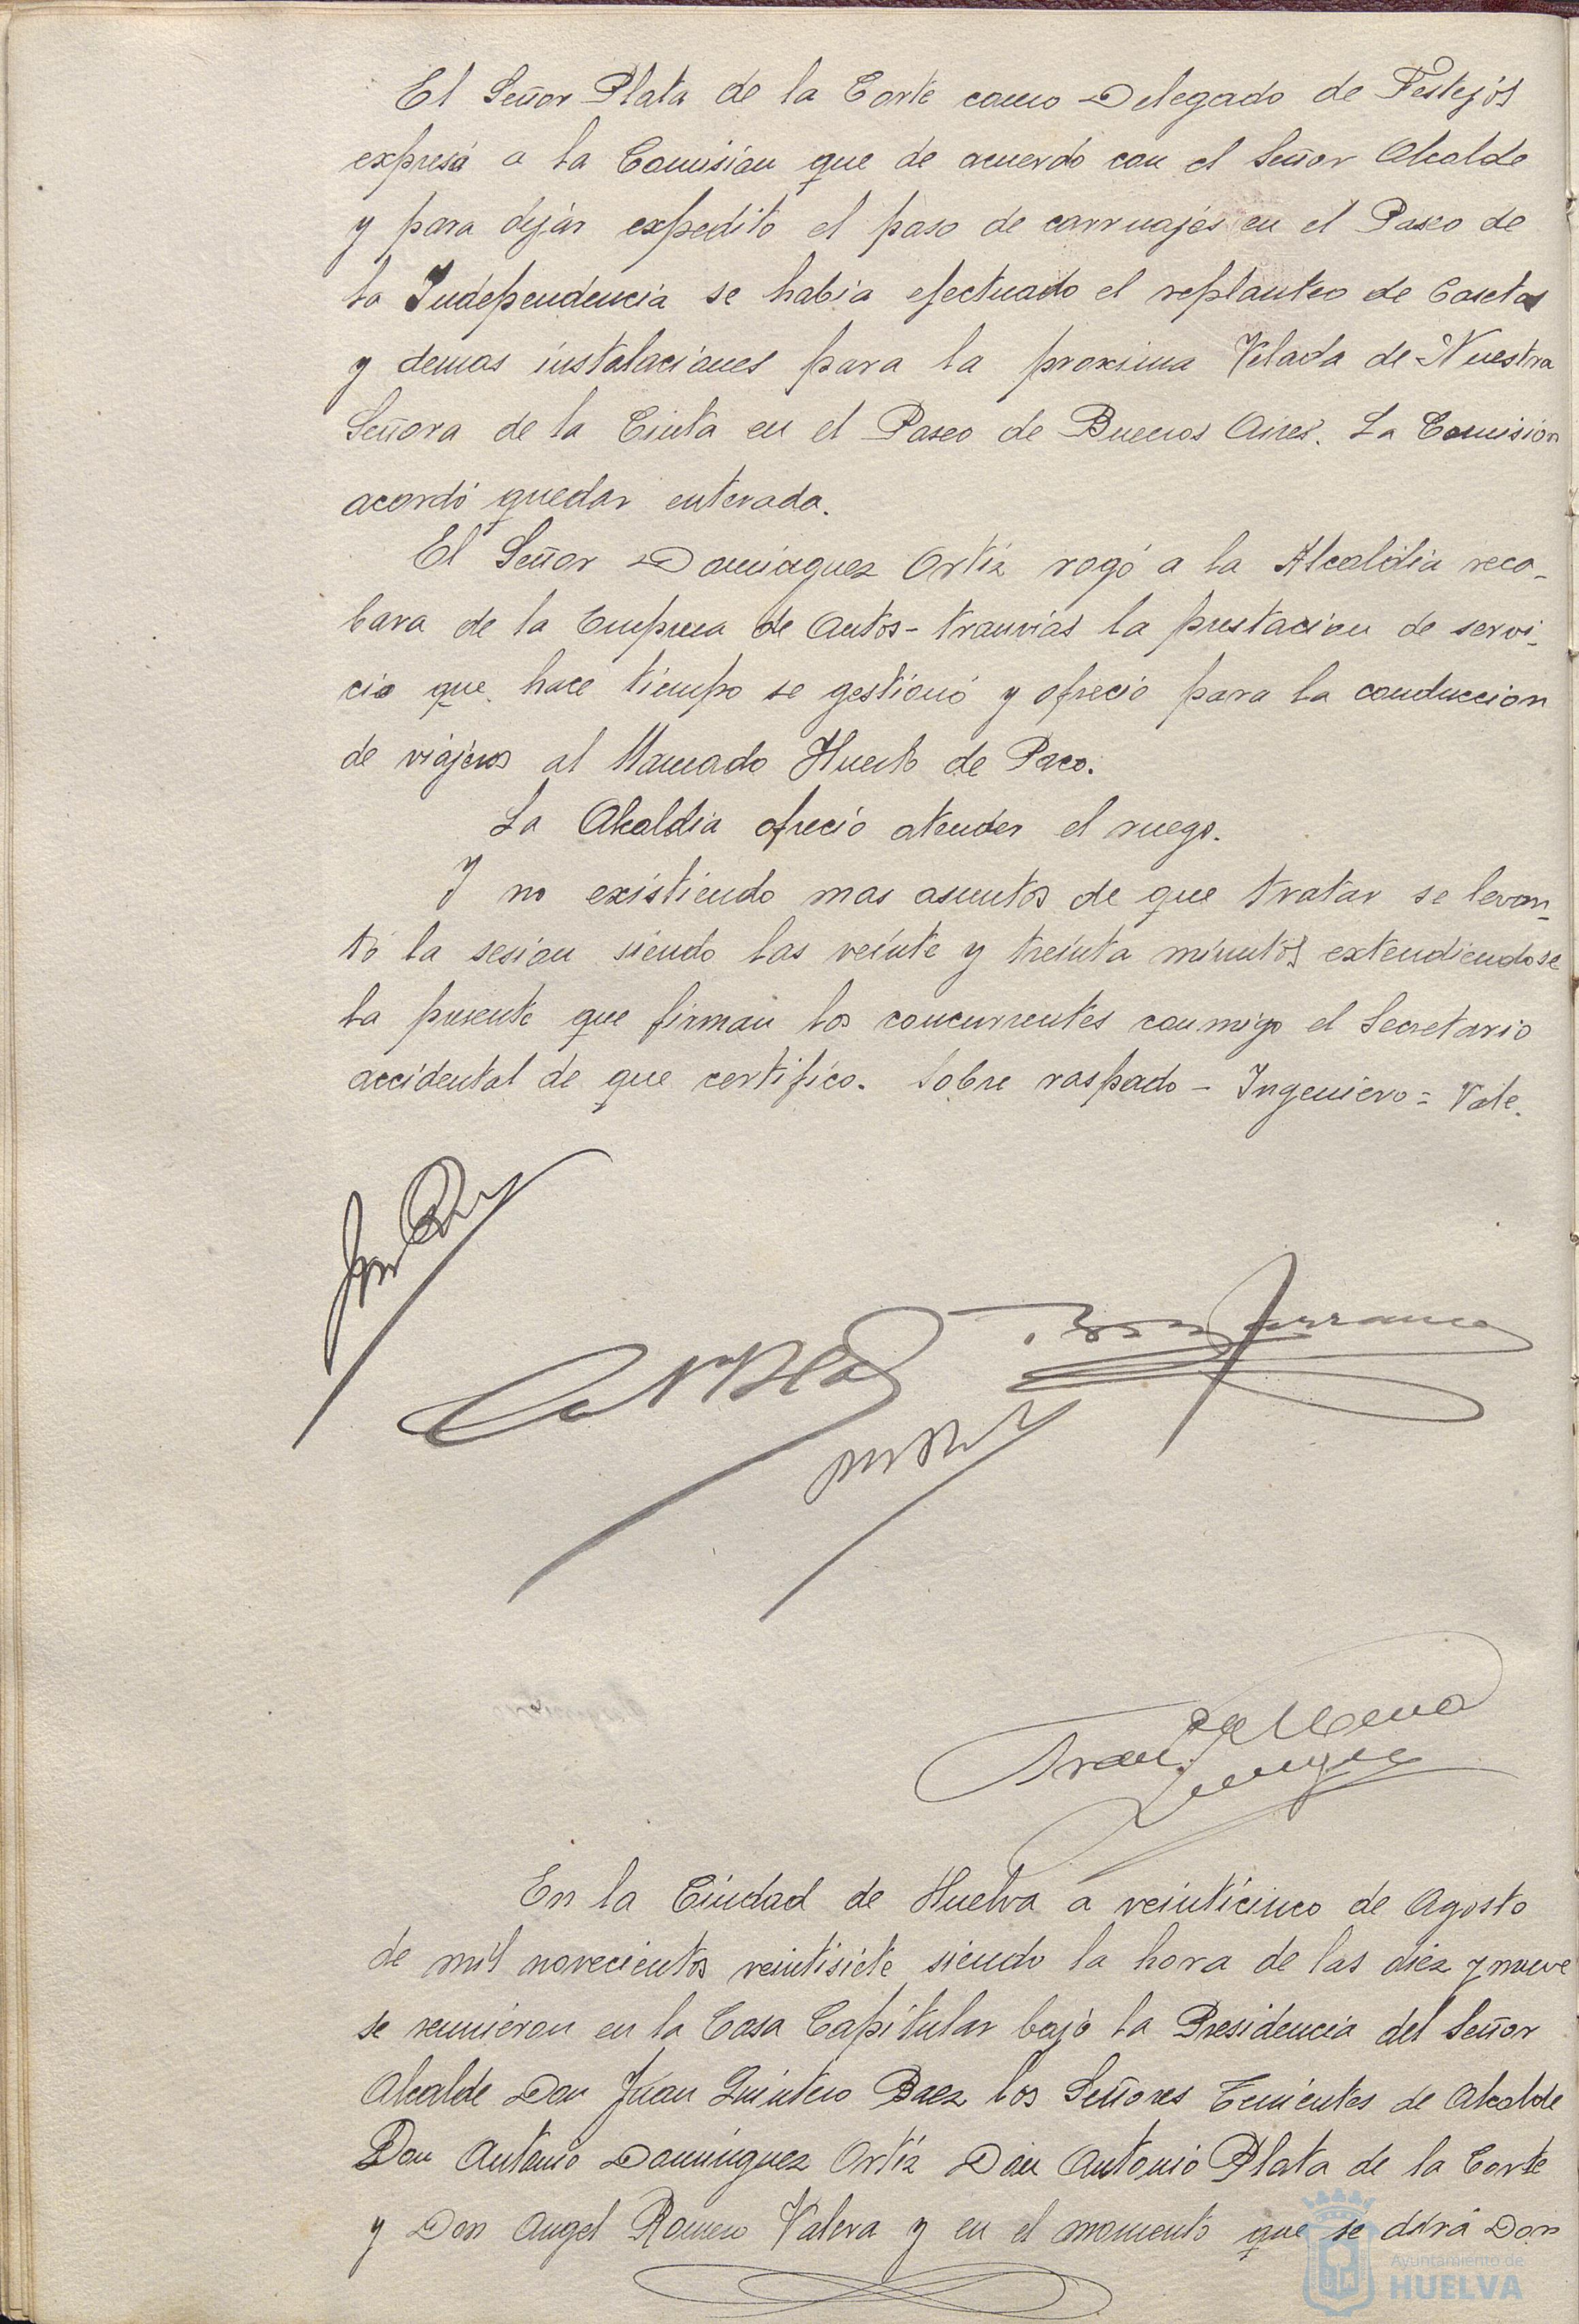 El Señor Plata de la Corte como Delegado de Festejos
expresó a la Comisión que de acuerdo con el Señor Alcalde
y para dejar expedito el paso de carruajes en el Paseo de
la Independencia se habia efectuado el replanteo de Casetas
y demas instalaciones para la proxima Velada de Nuestra
Señora de la Cinta en el Paseo de Buenos Aires. La Comisión
acordó quedar enterada.
El Señor Dominguez Ortiz rogó a la Alcaldia reca-
bara de la Empresa de Autos-tranvias la prestacion de servi-
cio que hace tiempo se gestionó y ofreció para la conduccion
de viajeros al llamado Huerto de Paco.
La Alcaldia ofreció atender el ruego.
Y no existiendo mas asuntos de que tratar se levan-
tó la sesion siendo las veinte y treinta minutos extendiendose
la presente que firman los concurrentes conmigo el Secretario
accidental de que certifico. Sobre raspado - Ingeniero = Vale.
En la Ciudad de Huelva a veinticinco de Agosto
de mil novecientos veintisiete siendo la hora de las diez y nueve
se reunieron en la Casa Capitular bajo la Presidencia del Señor
Alcalde Don Juan Quintero Baez los Señores Tenientes de Alcalde
Don Antonio Dominguez Ortiz Don Antonio Plata de la Corte
y Don Angel Romero Valera y en el momento que se dirá Don
Ayuntamiento de
HUELVA